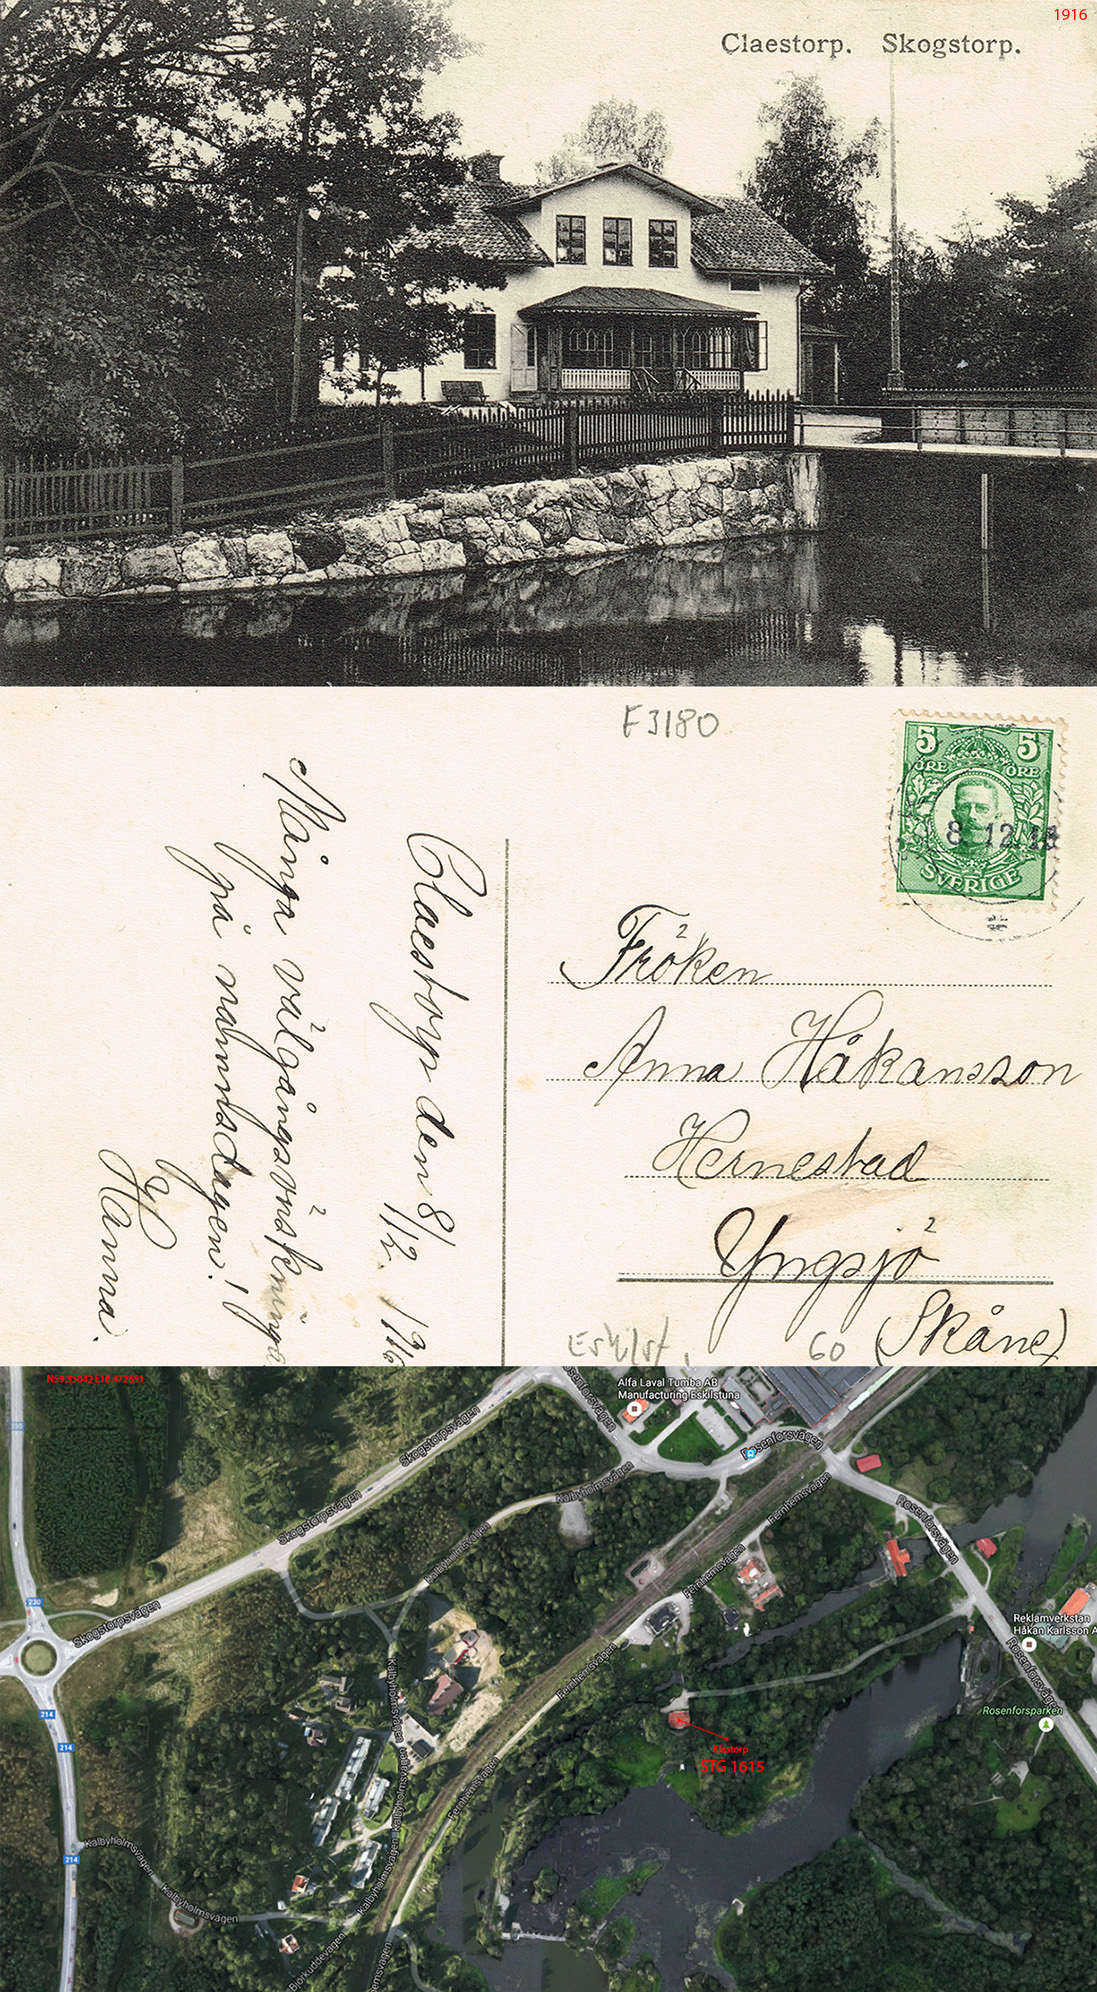 1916
Claestorp. Skogstorp.
F3180
5 5
ÖRE ÖRE
8 12
SVERIGE
Fröken
Anna Håkansson
Hernestad
Yngsjö
(Skåne)
60
Claestorp den 8/12. 1916
Många välgångsönskninga
på namnsdagen!
Hanna.
Rosenforsvägen
Alfa Laval Tumba AB
Manufacturing Eskilstuna
230
Skogstorpsvägen
Rosenforsvägen
Kalbyholmsvägen
Fernhemsvägen
Rosenforsvägen
Skogstorpsvägen
Kalbyholmsvägen
Fernhemsvägen
230
Skogstorpsvägen
Reklamverkstan
Håkan Karlsson A
Kalbyholmsvägen
Fernhemsvägen
Rosenforsvägen
214
Rosenforsparken
214
Klastorp
STG 1615
Kalbyholmsvägen
Fernhemsvägen
Kalbyholmsvägen
214
Kalbyholmsvägen
Kalbyholmsvägen
Björkuddevägen
emsvägen